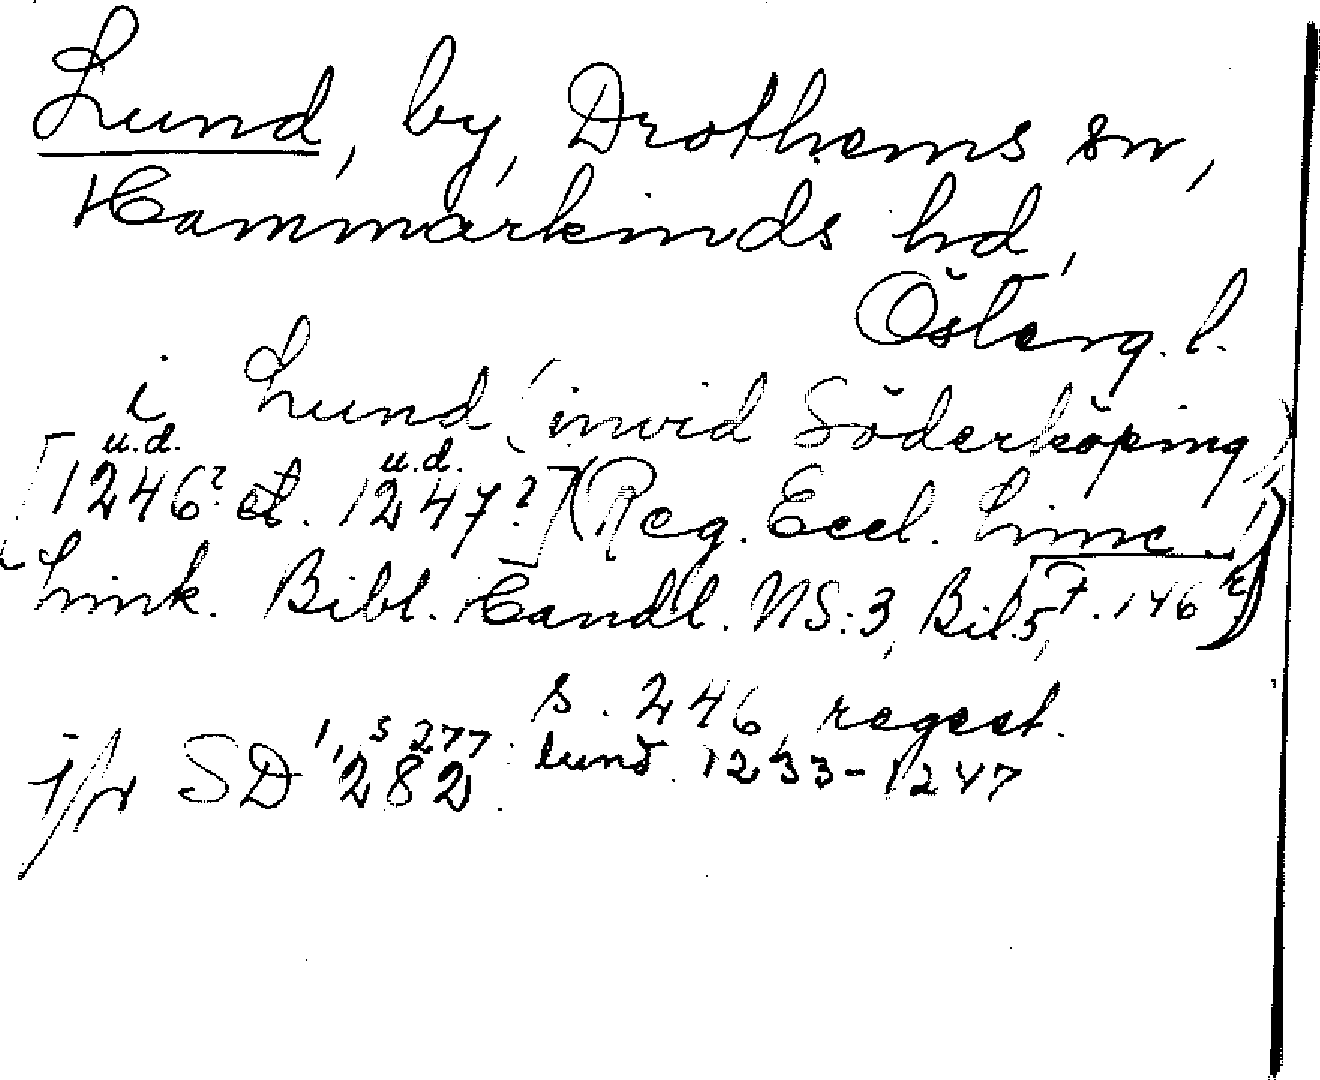 Lund, by, Drothems sn,
Hammarkinds hd,
Österg. l.
i Lund (invid Söderköping)
u.d. u.d.
[1246? el. 1247?] (Reg. Eccl. Linc.
Link. Bibl. Handl. NS:3, Bil.5, F. 146
s. 246 regest.
1, s 277: lund. 1233-1247
jfr SD 282.